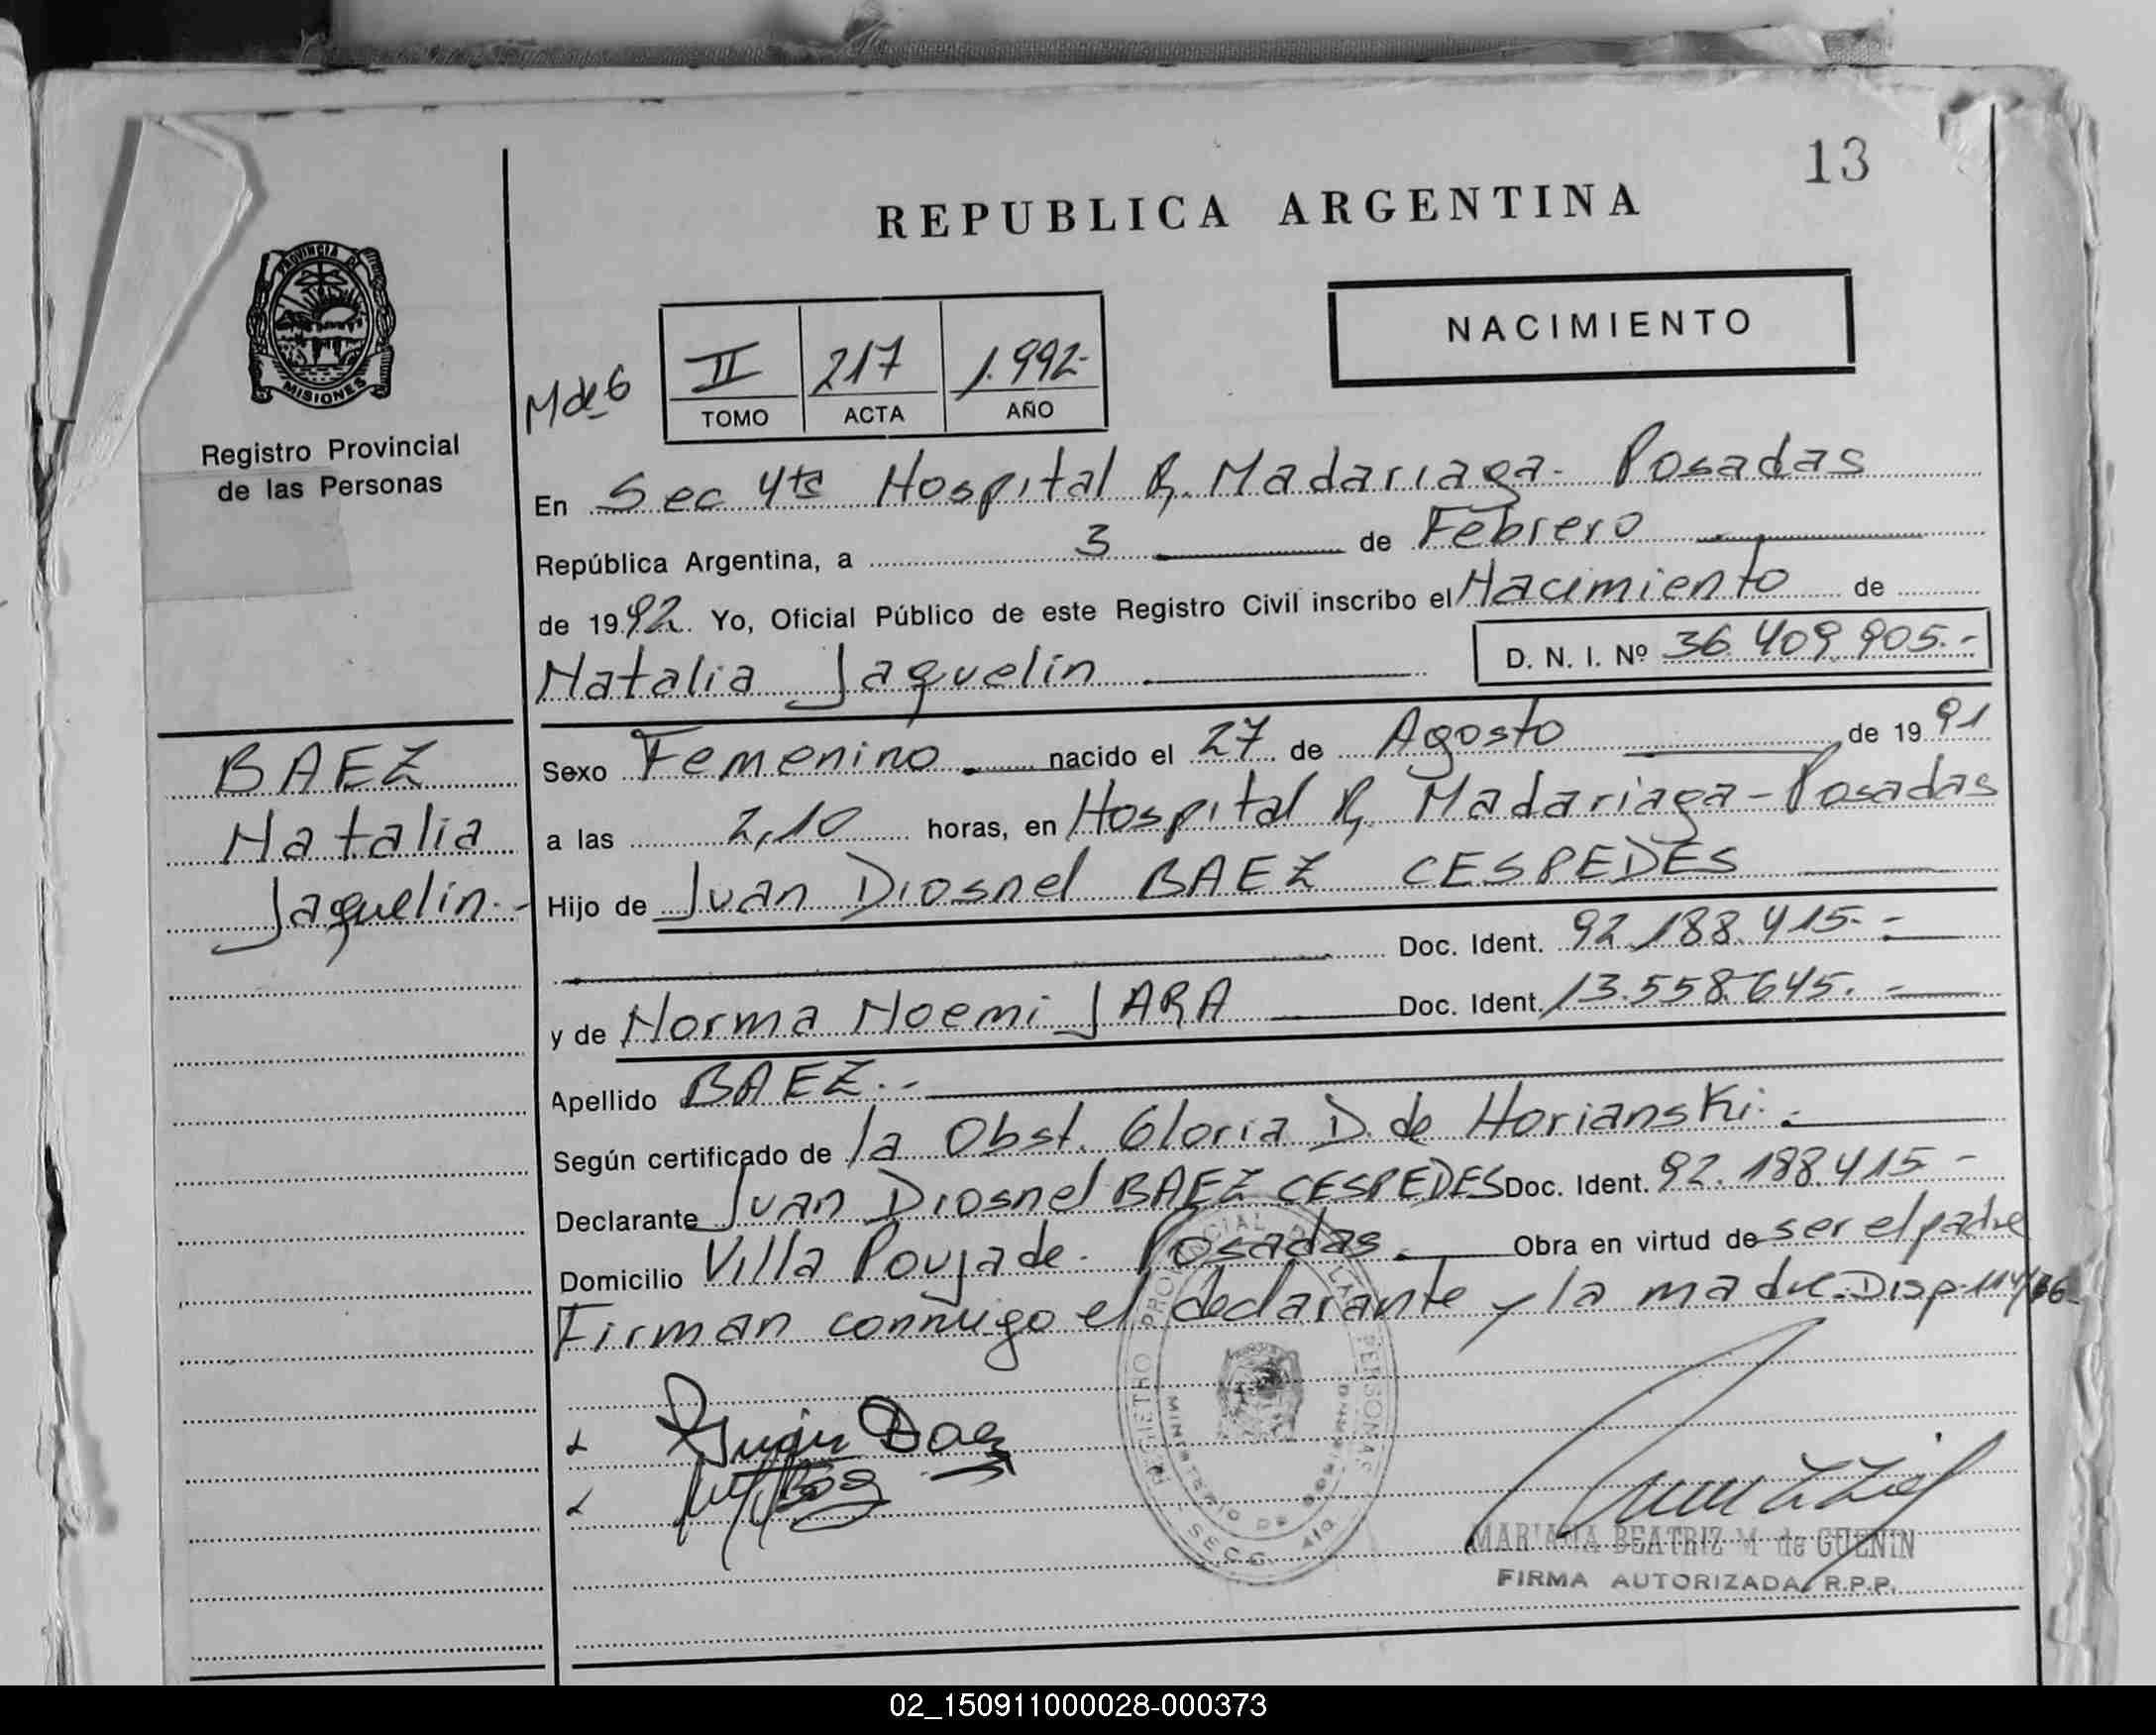 13
REPUBLICA ARGENTINA
NACIMIENTO
PROVINCIA DE
MISIONES
Registro Provincial
de las Personas
II 217 1.992-
TOMO ACTA AÑO
En Sec 4ta Hospital R. Madariaga - Posadas
República Argentina, a 3 de Febrero
de 1992. Yo, Oficial Público de este Registro Civil inscribo el Nacimiento de
Natalia Jaquelin D. N. I. Nº 36.409.905.-
BAEZ
Natalia
Jaquelin.-
Sexo Femenino nacido el 27 de Agosto de 1991
a las 2,10 horas, en Hospital R. Madariaga - Posadas
Hijo de Juan Diosnel BAEZ CESPEDES
Doc. Ident. 92.188.415.-
y de Norma Noemi JARA Doc. Ident. 13.558.645.-
Apellido BAEZ.-
Según certificado de la Obst. Gloria D. de Horianski.-
Declarante Juan Diosnel BAEZ CESPEDES Doc. Ident. 92.188.415-
Domicilio Villa Poujade - Posadas. Obra en virtud de ser el padre
Firman conmigo el declarante y la madre. Disp.
REGISTRO PROVINCIAL DE LAS PERSONAS
MINISTERIO DE GOBIERNO
MARIANA BEATRIZ M de GUENIN
FIRMA AUTORIZADA R.P.P.
02_150911000028-000373